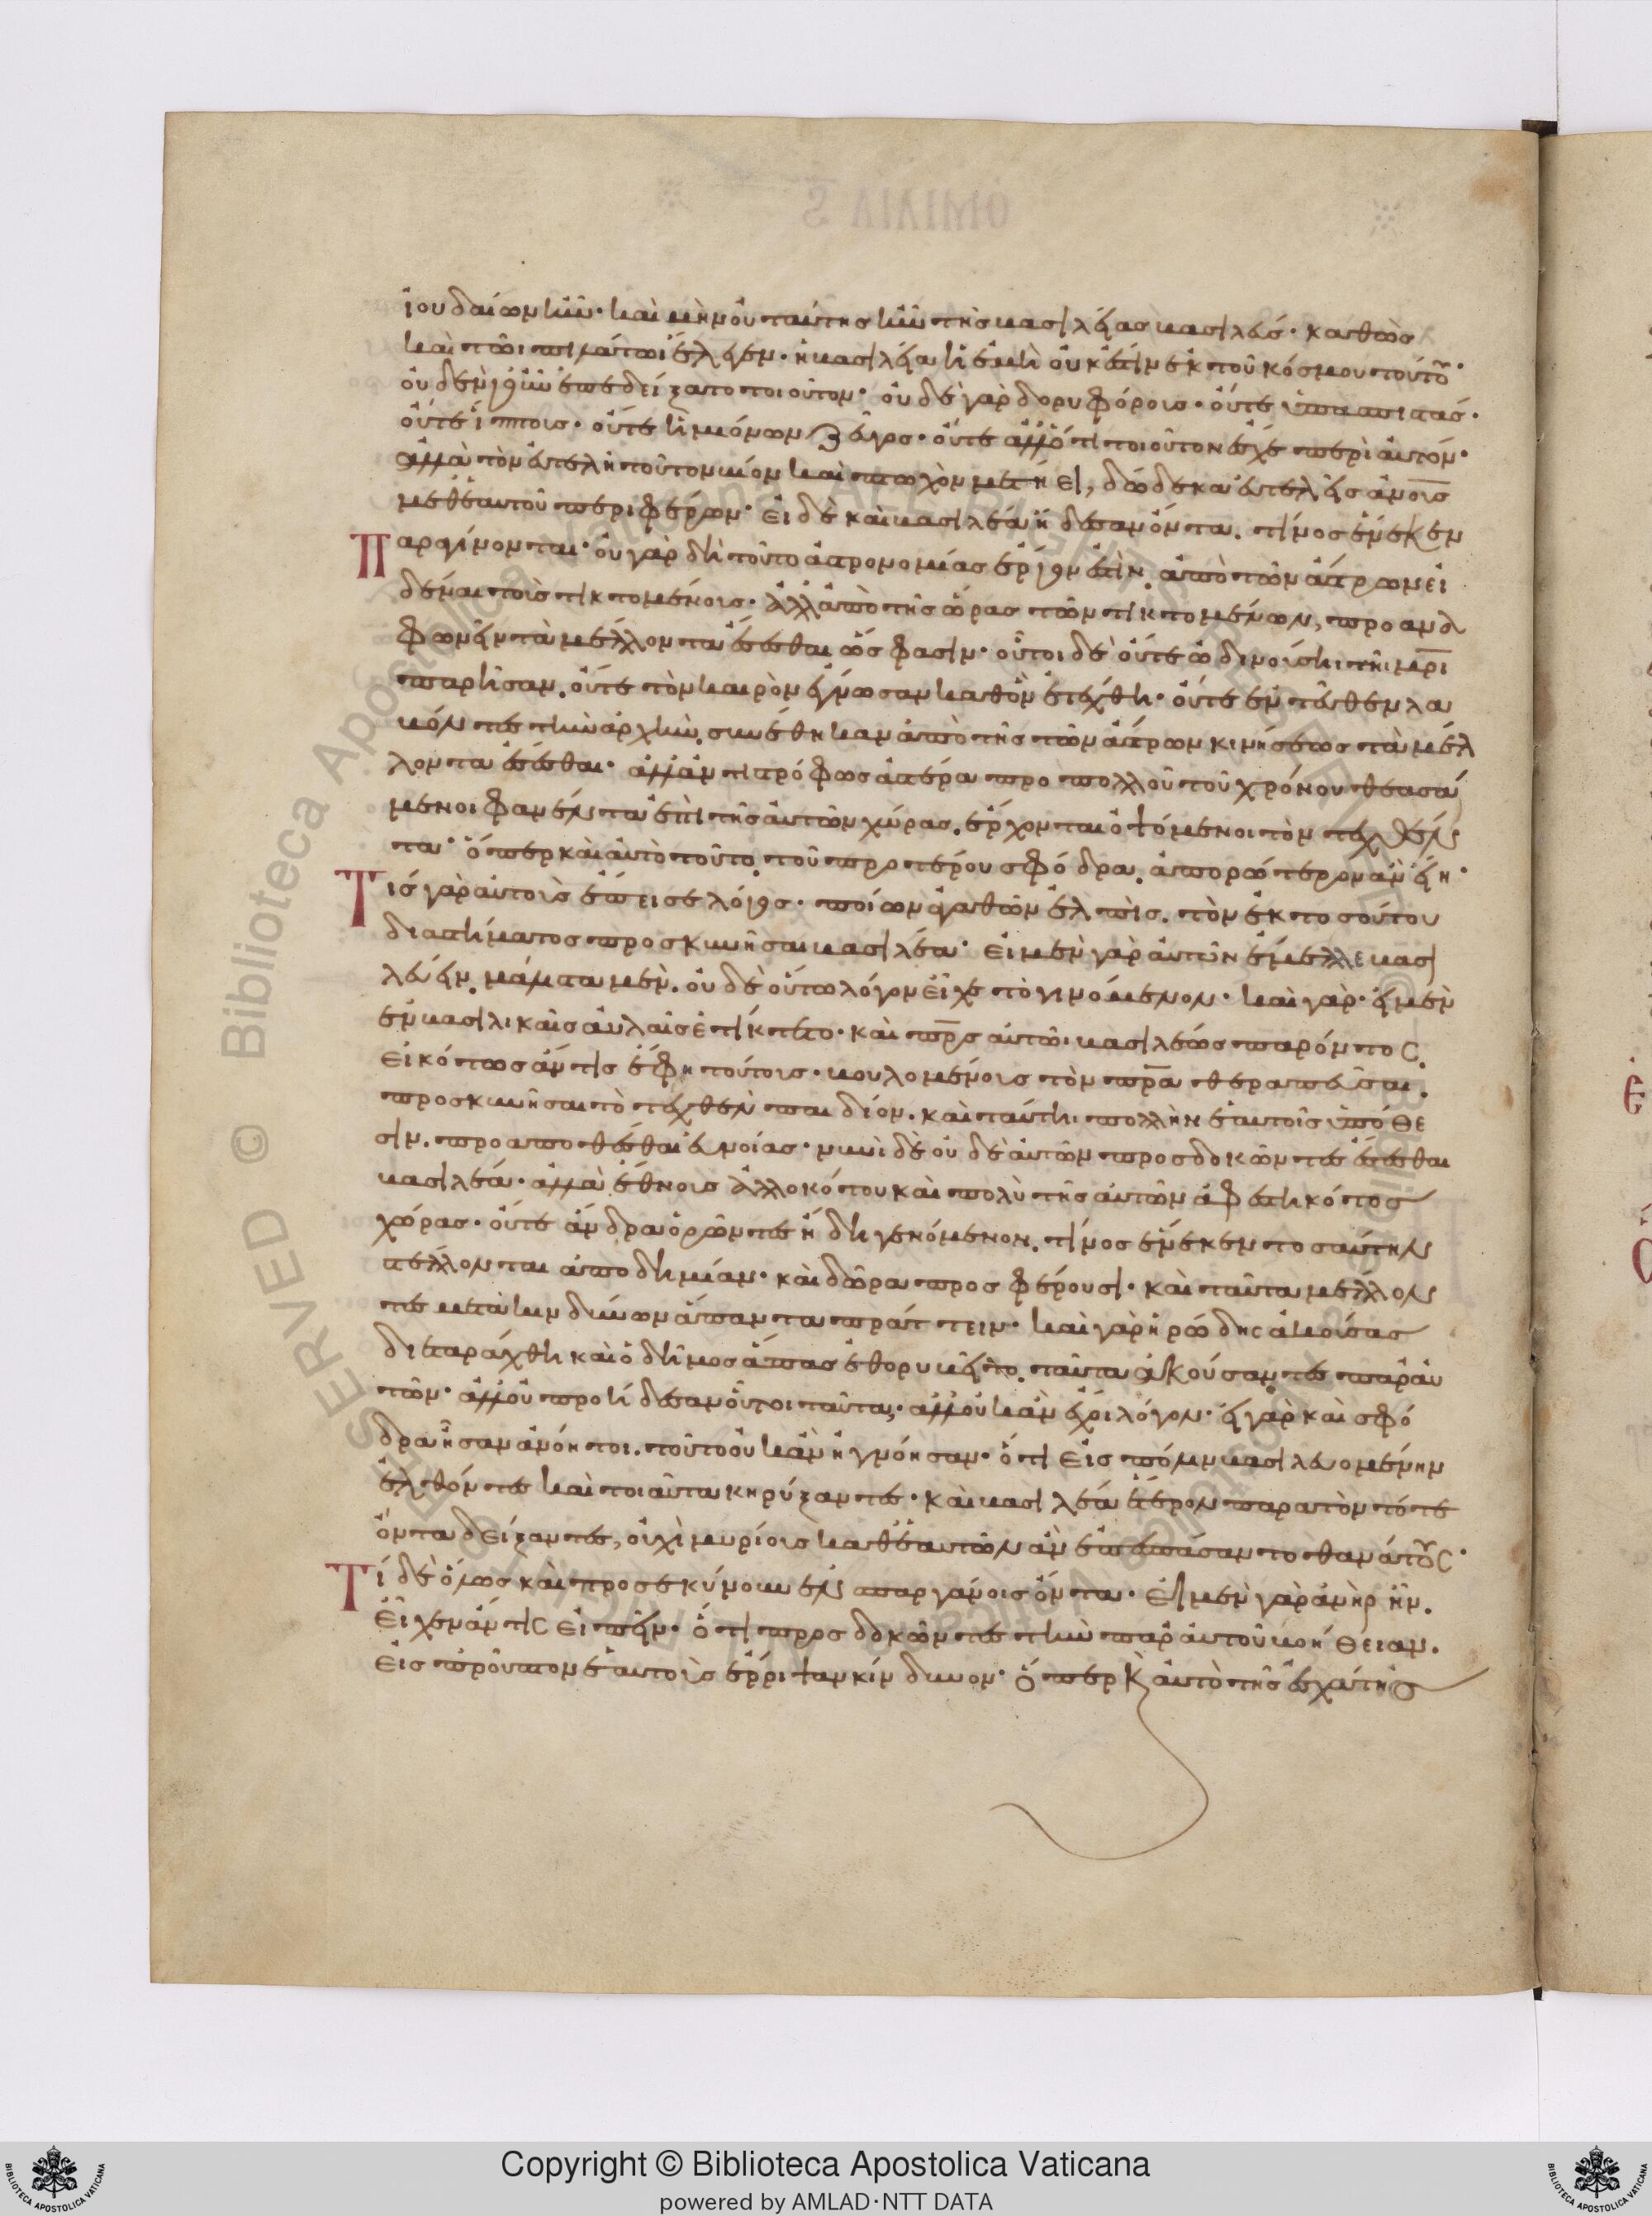 ΟΜΙΛΙΑ Ϛ
ἰουδαίων ἦν· καὶ μὴν οὐ ταύτης ἦν τῆς βασιλείας βασιλεύς· καθὼς
καὶ τῶι πιλάτωι ἔλεγεν· ἡ βασιλεία ἡ ἐμὴ οὐκ ἔστιν ἐκ τοῦ κόσμου τούτου·
οὐδὲν γοῦν ἐπεδείξατο τοιοῦτον· οὐδὲ γὰρ δορυφόρους· οὔτε ὑπασπιστάς·
οὔτε ἵππους· οὔτε ἡμιόνων ζεῦγος· οὔτε ἄλλό τι τοιοῦτον εἶχε περὶ αὐτόν·
ἀλλὰ τὸν εὐτελῆ τοῦτον βίον καὶ πτωχὸν μετήει, δώδεκα εὐτελεῖς ἀνους
μεθ ἑαυτοῦ περιφέρων· εἰ δὲ καὶ βασιλέα ἤδεσαν ὄντα. τίνος ἕνεκεν
παραγίνονται· οὐ γὰρ δὴ τοῦτο ἀστρονομίας ἔργον ἐστὶν. ἀπὸ τῶν ἄστρων εἰ
δέναι τοὺς τικτομένους· ἀλλ ἀπὸ τῆς ὥρας τῶν τικτομένων, προανα
φωνεῖν τὰ μέλλοντα ἔσεσθαι ὥς φασιν· οὗτοι δὲ οὔτε ὠδινούσηι τῆι μρι
παρῆσαν. οὔτε τὸν καιρὸν ἔγνωσαν καθ ὃν ἐτέχθη· οὔτε ἐντεῦθεν λα
βόντες τὴν ἀρχὴν. συνέθηκαν ἀπὸ τῆς τῶν ἄστρων κινήσεως τὰ μέλ
λοντα ἔσεσθαι· ἀλλ ἀντιστρόφως ἀστέρα πρὸ πολλοῦ τοῦ χρόνου θεασά
μενοι φανέντα ἐπὶ τῆς αὐτῶν χώρας. ἔρχονται ὀψόμενοι τὸν τεχθέν
τα· ὅπερ καὶ αὐτὸ τοῦτο τοῦ προτέρου σφόδρα. ἀπορώτερον ἂν εἴη·
Τίς γὰρ αὐτοὺς ἔπεισε λόγος· ποίων ἀγαθῶν ἐλπὶς. τὸν ἐκ τοσούτου
διαστήματος προσκυνῆσαι βασιλέα· εἰ μὲν γὰρ αὐτῶν ἔμελλε βασι
λεύειν. μάλιστα μὲν. οὐδὲ οὕτω λόγον εἶχε τὸ γινόμενον· καὶ γὰρ· εἰ μὲν
ἐν βασιλικαῖς αὐλαῖς ἐτίκτετο· καὶ πρς αὐτῶ βασιλέως παρόντος.
εἰκότως ἄν τις ἔφη τούτους· βουλομένους τὸν πρα θεραπεῦσαι.
προσκυνῆσαι τὸ τεχθὲν παιδίον. καὶ ταύτηι πολλὴν ἑαυτοῖς ὑπόθε
σιν. προαποθέσθαι εὐνοίας· νυνὶ δὲ οὐδὲ αὐτῶν προσδοκῶντες ἔσεσθαι
βασιλέα· ἀλλὰ ἔθνους ἀλλοκότου καὶ πολὺ τῆς αὐτῶν ἀφεστηκότος
χώρας· οὔτε ἄνδρα ὁρῶντες ἤδη γενόμενον. τίνος ἕνεκεν τοσαύτην
στέλλονται ἀποδημίαν· καὶ δῶρα προσφέρουσι· καὶ ταῦτα μέλλον
τες μετὰ κινδύνων ἅπαντα πράττειν· καὶ γὰρ ἡρώδης ἀκούσας
διεταράχθη καὶ ὁ δῆμος ἅπας ἐθορυβεῖτο. ταῦτα ἀκούσαντες παρ αὐ
τῶν· ἀλλ οὐ προήιδεσαν οὗτοι ταῦτα· ἀλλ οὐκ ἂν ἔχοι λόγον· εἰ γὰρ καὶ σφό
δρα ἦσαν ἀνόητοι. τοῦτο οὐκ ἂν ἠγνόησαν· ὅτι εἰς πόλιν βασιλευομένην
ἐλθόντες καὶ τοιαῦτα κηρύξαντες· καὶ βασιλέα ἕτερον παρὰ τὸν τότε
ὄντα δείξαντες, οὐχὶ μυρίους καθ ἑαυτῶν ἂν ἐπεσπάσαντο θανάτους·
Τί δὲ ὅλως καὶ προσεκύνουν ἐν σπαργάνοις ὄντα· εἰ μὲν γὰρ ἀνὴρ ἦν.
εἶχεν ἄν τις εἰπεῖν· ὅτι προσδοκῶντες τὴν παρ αὐτοῦ βοήθειαν.
εἰς προῦπτον ἑαυτοὺς ἔρριψαν κίνδυνον· ὅπερ κ αὐτὸ τῆς ἐσχάτης
SERVED © Biblioteca Apostolica Vaticana
Copyright © Biblioteca Apostolica Vaticana
powered by AMLAD·NTT DATA